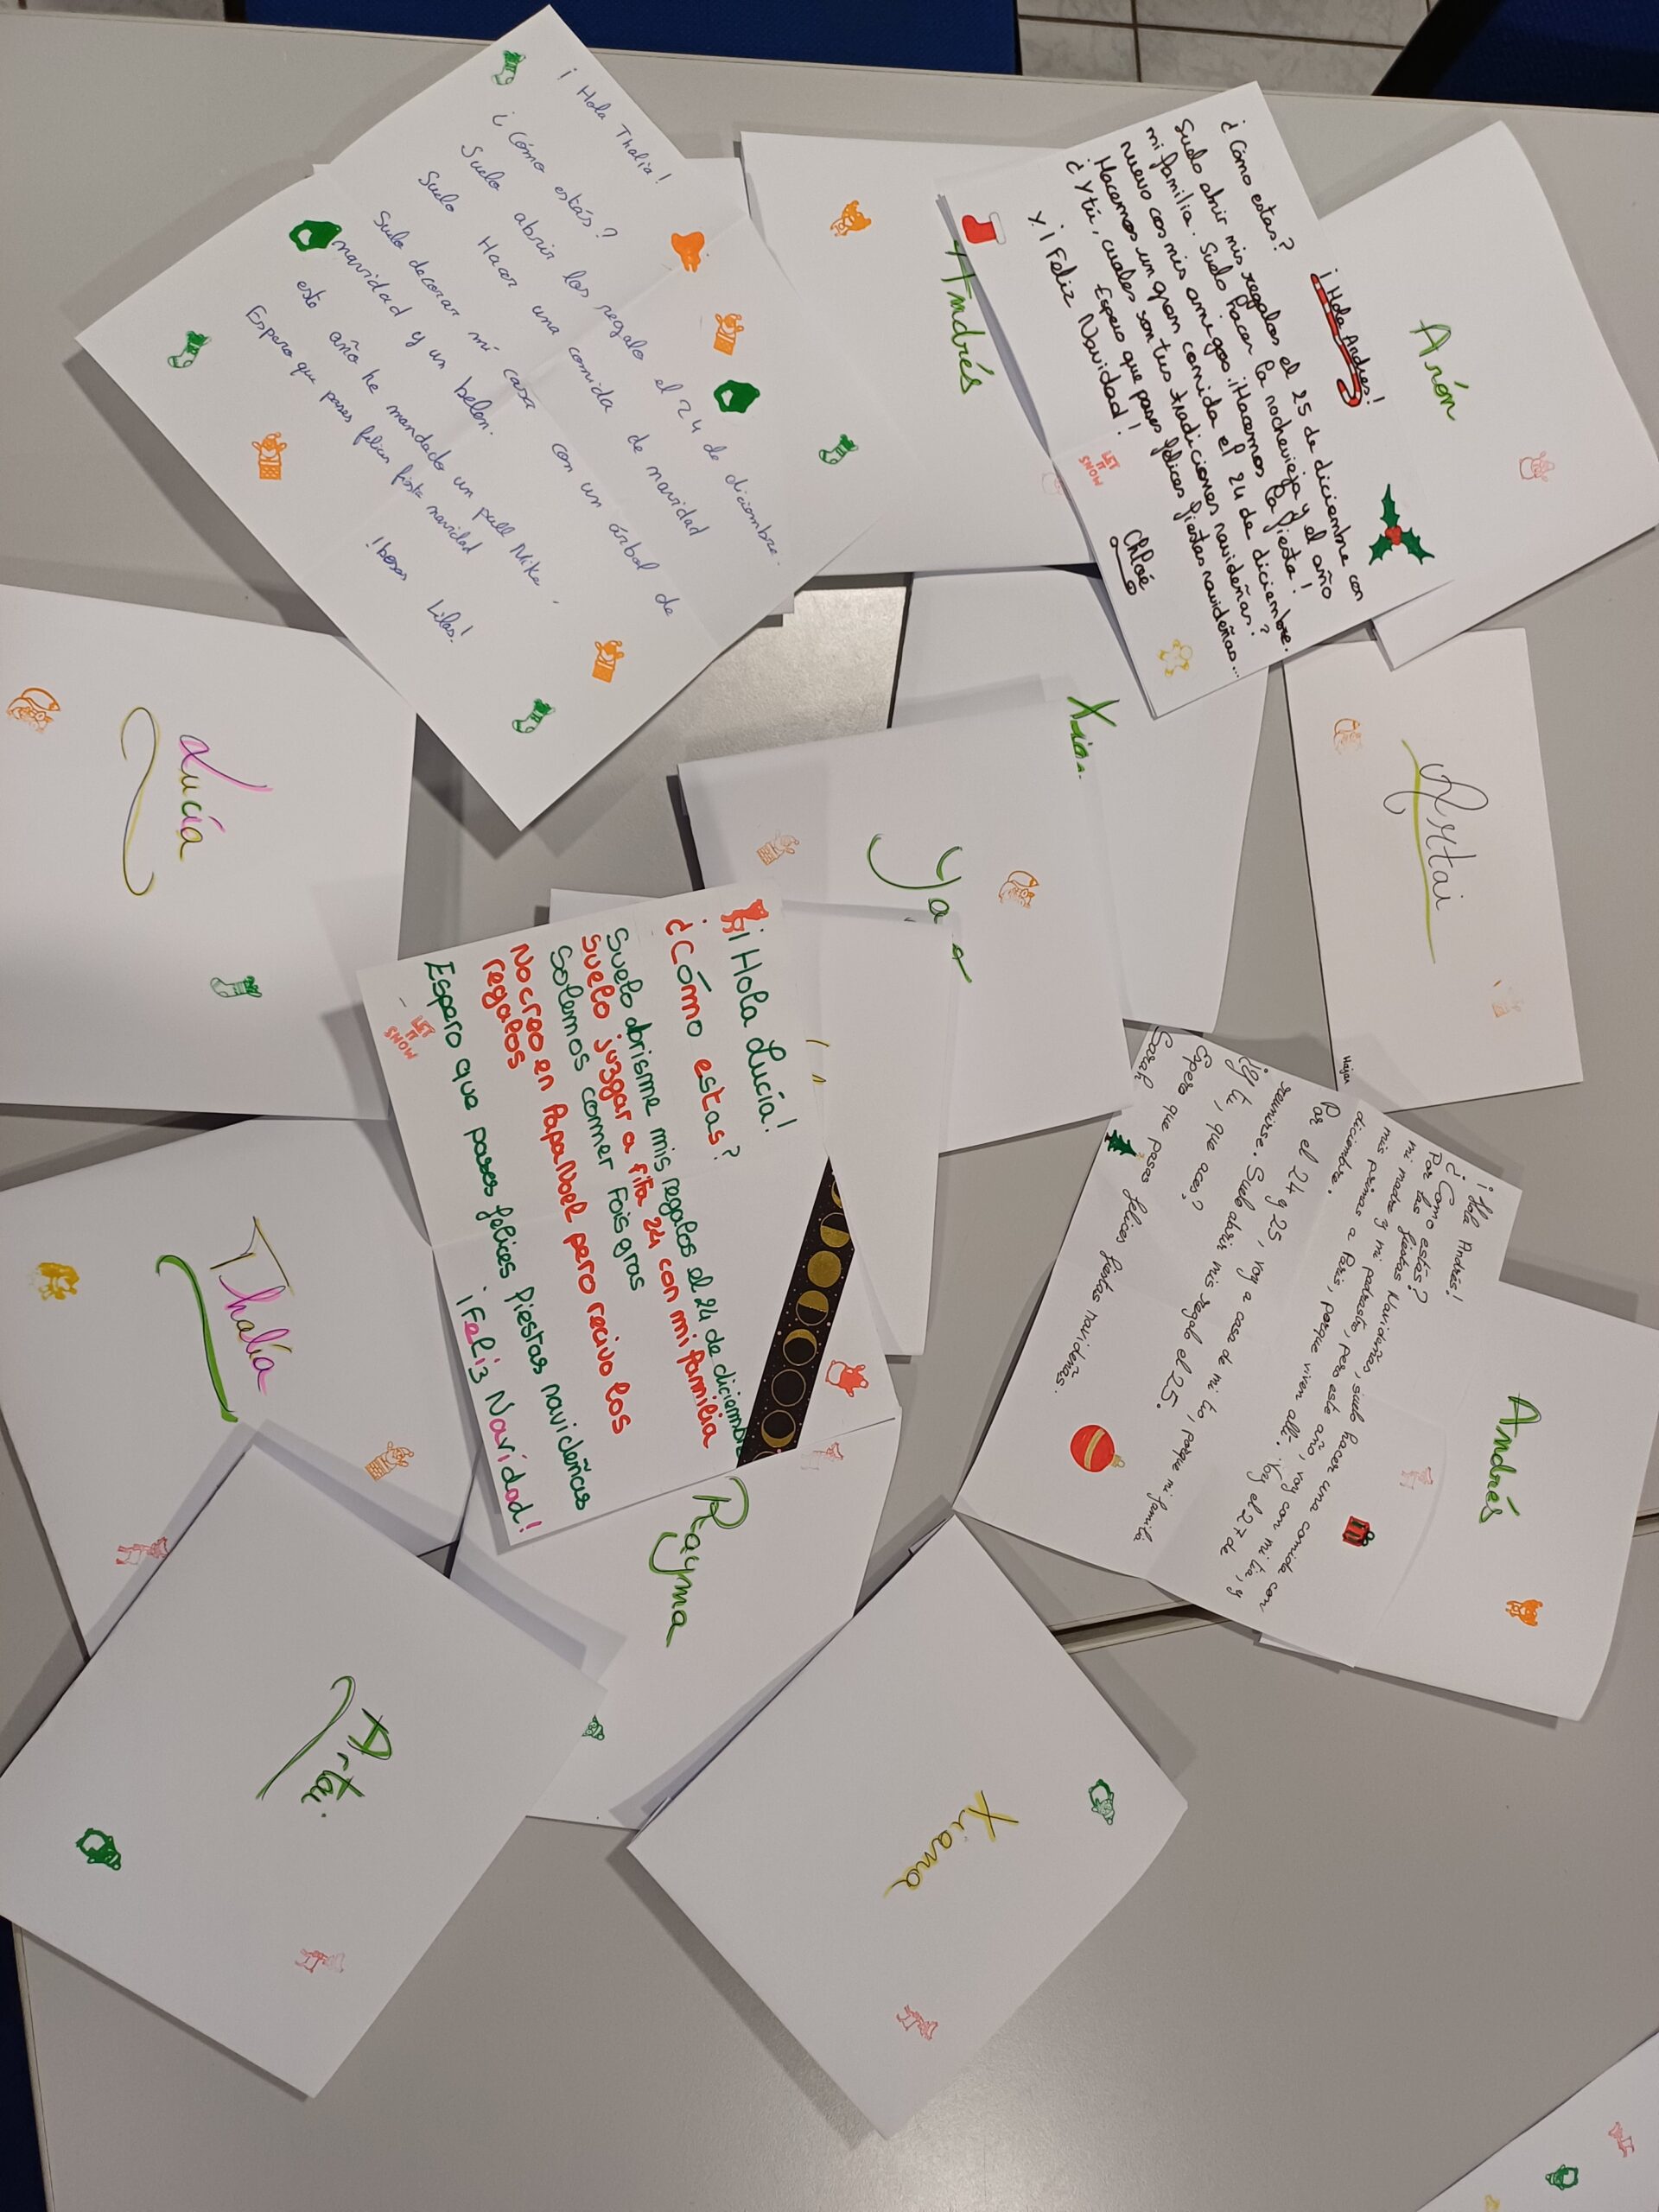 ¡Hola Thalia!
¿Cómo estás?
Suelo abrir los regalo el 24 de diciembre.
Suelo Hacer una comida de navidad
Suelo decorar mi casa con un árbol de
navidad y un belen.
este año he mandado un pull Nike.
Espero que pases felices fiesta navidad
!besos Lilas!
Andrés
¡Hola Andres!
¿Cómo estas?
Suelo abrir mis regalos el 25 de diciembre con
mi familia. Suelo hacer la nochevieja y el año
nuevo cos mis amigos ¡Hacemos la fiesta!
Hacemos un gran comida el 24 de diciembre.
¿Y tú, cuales son tus tradiciones navideñas?
Espero que pases felices fiestas navideñas...
Y ¡Feliz Navidad!
LET
IT
SNOW
Chloé
Arón
Artai
Hajar
Lucía
Thalía
¡Hola Lucía!
¿Cómo estas?
Suelo abrisme mis regalos el 24 de diciembre
suelo juzgar a fifa 24 con mi familia
Solemos comer Fois gras
No creo en PapaNoel pero recivo los
regalos
Espero que pases felices fiestas navideñas
¡Feliz Navidad!
LET
IT
SNOW
¡Hola Andrés!
¿Como estás?
Por las fiestas Navidañas, suelo hacer una comida con
mi madre y mi padrasto, pero este año, voy con mi tia, y
mis primas a Paris, porque viven allí. Voy el 27 de
diciembre.
Por el 24 y 25, voy a casa de mi tío, porque mi familia
reunirse. Suelo abrir mis regalo el 25.
¿y tú, que aces?
Espero que pasas felices fiestas navideñas.
Sarah
Andrés
Rayma
Artai
Xiana